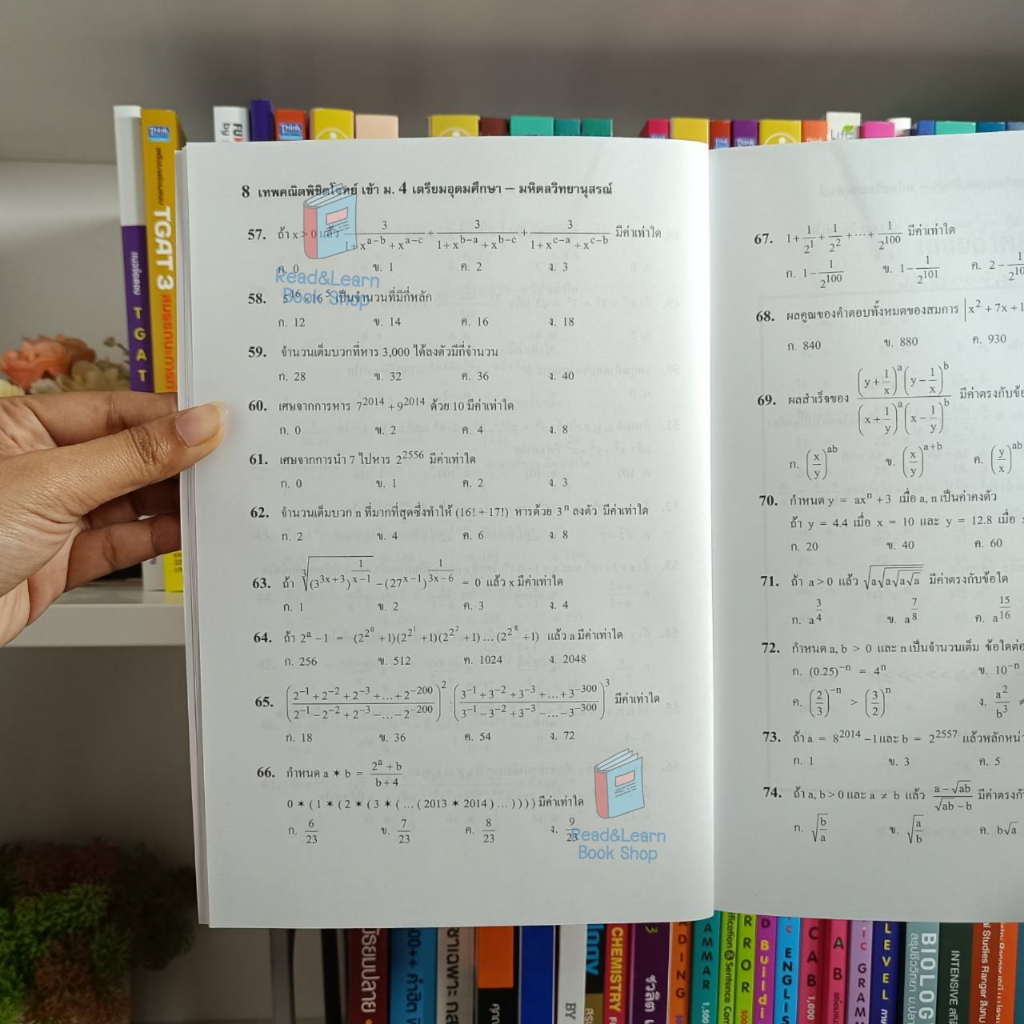 8 เทพคณิตพิชิตโจทย์ เข้า ม. 4 เตรียมอุดมศึกษา – มหิดลวิทยานุสรณ์
57. ถ้า x > 0 แล้ว 3/(1+x^(a−b)+x^(a−c)) + 3/(1+x^(b−a)+x^(b−c)) + 3/(1+x^(c−a)+x^(c−b)) มีค่าเท่าใด
ก. 0 ข. 1 ค. 2 ง. 3
Read&Learn
Book Shop
58. เป็นจำนวนที่มีกี่หลัก
ก. 12 ข. 14 ค. 16 ง. 18
59. จำนวนเต็มบวกที่หาร 3,000 ได้ลงตัวมีกี่จำนวน
ก. 28 ข. 32 ค. 36 ง. 40
60. เศษจากการหาร 7^2014 + 9^2014 ด้วย 10 มีค่าเท่าใด
ก. 0 ข. 2 ค. 4 ง. 8
61. เศษจากการนำ 7 ไปหาร 2^2556 มีค่าเท่าใด
ก. 0 ข. 1 ค. 2 ง. 3
62. จำนวนเต็มบวก n ที่มากที่สุดซึ่งทำให้ (16! + 17!) หารด้วย 3^n ลงตัว มีค่าเท่าใด
ก. 2 ข. 4 ค. 6 ง. 8
63. ถ้า ∛((3^(3x+3))^(1/(x−1))) − (27^(x−1))^(1/(3x−6)) = 0 แล้ว x มีค่าเท่าใด
ก. 1 ข. 2 ค. 3 ง. 4
64. ถ้า 2^a − 1 = (2^(2^0) + 1)(2^(2^1) + 1)(2^(2^2) + 1) ... (2^(2^8) + 1) แล้ว a มีค่าเท่าใด
ก. 256 ข. 512 ค. 1024 ง. 2048
65. ((2^−1 + 2^−2 + 2^−3 + ... + 2^−200)/(2^−1 − 2^−2 + 2^−3 − ... − 2^−200))^2 · ((3^−1 + 3^−2 + 3^−3 + ... + 3^−300)/(3^−1 − 3^−2 + 3^−3 − ... − 3^−300))^3 มีค่าเท่าใด
ก. 18 ข. 36 ค. 54 ง. 72
66. กำหนด a ∗ b = (2^a + b)/(b + 4)
0 ∗ ( 1 ∗ ( 2 ∗ ( 3 ∗ ( ... ( 2013 ∗ 2014 ) ... ) ) ) ) มีค่าเท่าใด
ก. 6/23 ข. 7/23 ค. 8/23 ง. 9/23
Read&Learn
Book Shop
67. 1 + 1/2^1 + 1/2^2 + ··· + 1/2^100 มีค่าเท่าใด
ก. 1 − 1/2^100 ข. 1 − 1/2^101 ค. 2 −
68. ผลคูณของคำตอบทั้งหมดของสมการ |x^2 + 7x + 1
ก. 840 ข. 880 ค. 930
69. ผลสำเร็จของ ((y + 1/x)^a (y − 1/x)^b)/((x + 1/y)^a (x − 1/y)^b) มีค่าตรงกับข้อ
ก. (x/y)^ab ข. (x/y)^(a+b) ค. (y/x)^ab
70. กำหนด y = ax^n + 3 เมื่อ a, n เป็นค่าคงตัว
ถ้า y = 4.4 เมื่อ x = 10 และ y = 12.8 เมื่อ
ก. 20 ข. 40 ค. 60
71. ถ้า a > 0 แล้ว √(a√(a√(a√a))) มีค่าตรงกับข้อใด
ก. a^(3/4) ข. a^(7/8) ค. a^(15/16)
72. กำหนด a, b > 0 และ n เป็นจำนวนเต็ม ข้อใดต่อ
ก. (0.25)^−n = 4^n ข. 10^−n
ค. (2/3)^−n > (3/2)^n ง. a^2/b^3 ≠
73. ถ้า a = 8^2014 − 1 และ b = 2^2557 แล้วหลักหน่
ก. 1 ข. 3 ค. 5
74. ถ้า a, b > 0 และ a ≠ b แล้ว (a − √ab)/(√ab − b) มีค่าตรง
ก. √(b/a) ข. √(a/b) ค. b√a
TGAT 3
TGAT
Think
Life
CHEMISTRY
BY
ชวลิต
DING
AMMAR
1,500
Sentence
RROR
Buildi
ENGLIS
CAB
1,000
AB
GRAMM
LEVEL
BIOLOG
สรุปชีววิทยา ม.ปลาย
INTENSIVE
al Studies Ranger